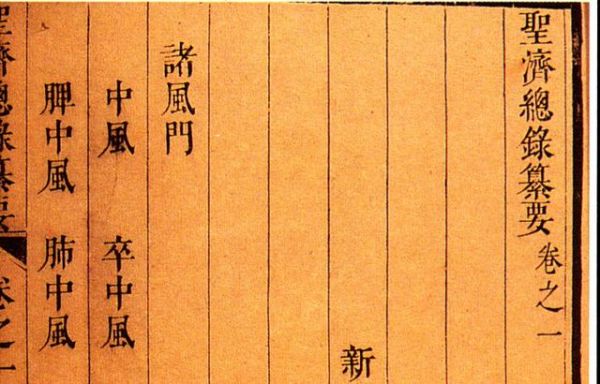 聖濟總錄纂要卷之一
新
諸風門
中風 卒中風
脾中風 肺中風
聖濟總錄纂要 卷之一